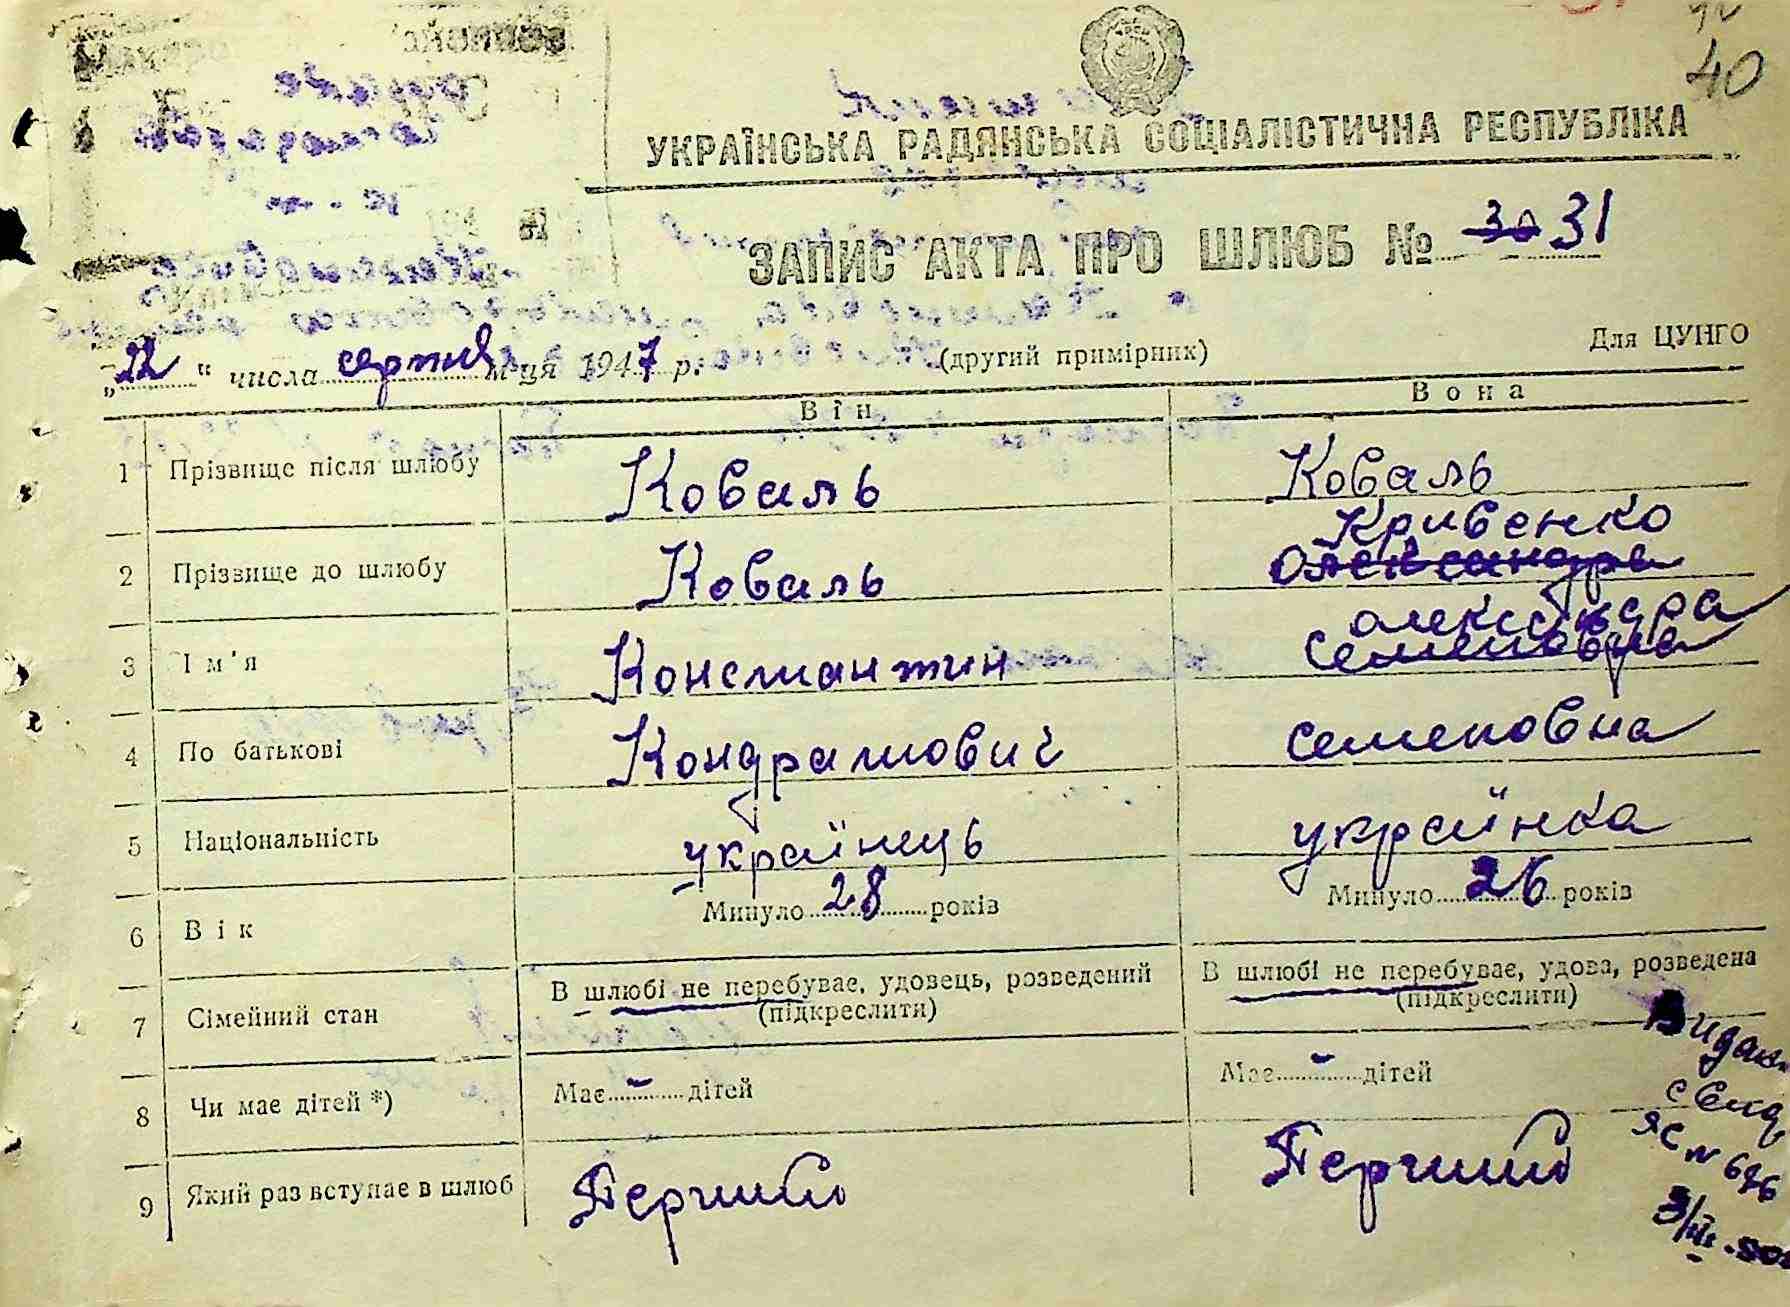 40
УКРАЇНСЬКА РАДЯНСЬКА СОЦІАЛІСТИЧНА РЕСПУБЛІКА
ЗАПИС АКТА ПРО ШЛЮБ № 30 31
„22" числа серпня м-ця 1947 р. (другий примірник) Для ЦУНГО
Він Вона
1 Прізвище після шлюбу Коваль Коваль
Кривенко
2 Прізвище до шлюбу Коваль Олександра
Олександра
3 Ім'я Константин Семеновна
4 По батькові Кондратович Семеновна
5 Національність українець українка
6 Вік Минуло 28 років Минуло 26 років
7 Сімейний стан В шлюбі не перебуває, удовець, розведений (підкреслити) В шлюбі не перебуває, удова, розведена (підкреслити)
8 Чи має дітей *) Має - дітей Має - дітей
9 Який раз вступає в шлюб Перший Перший
Видан.
свид.
ЯС № 676